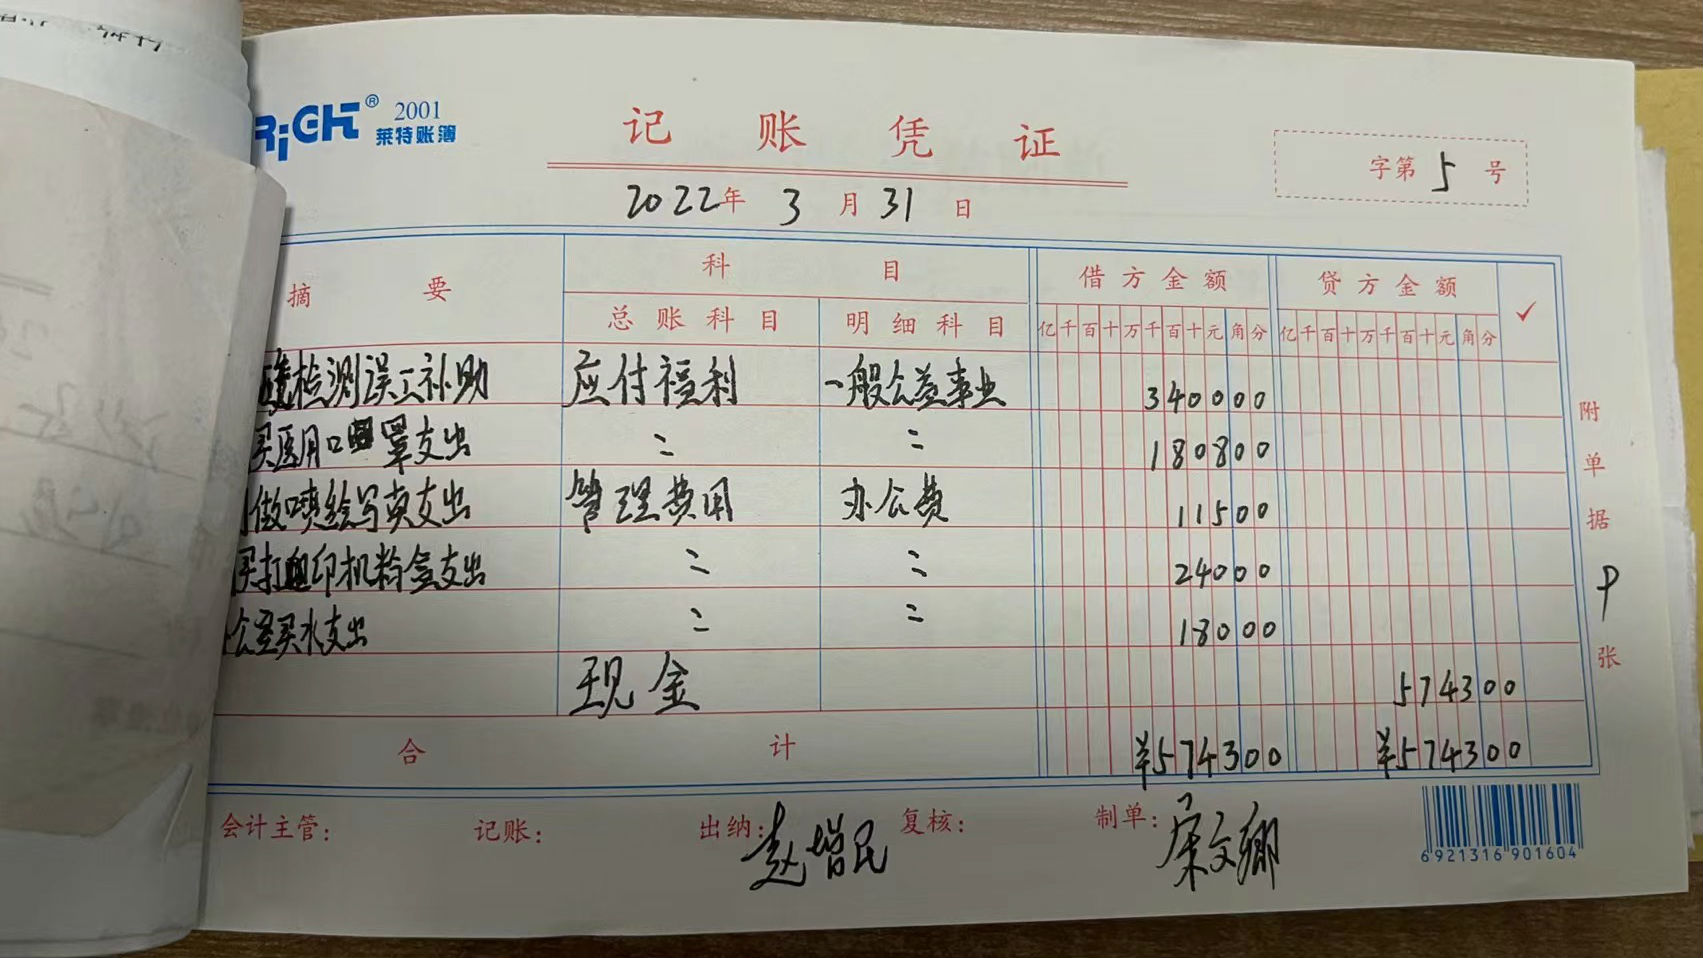 RiGHT® 2001
莱特账簿
记账凭证
字第 5 号
2022年 3月 31日
摘要 科目 借方金额 贷方金额 ✓
总账科目 明细科目 亿千百十万千百十元角分 亿千百十万千百十元角分
检测误工补助 应付福利 一般公益事业 340000
买医用口罩支出 〃 〃 180800
做喷绘写真支出 管理费用 办公费 11500
买打印机粉盒支出 〃 〃 24000
公室买水支出 〃 〃 18000
现金 574300
合计 ¥574300 ¥574300
附单据 张
会计主管: 记账: 出纳: 赵增民 复核: 制单:
6921316901604